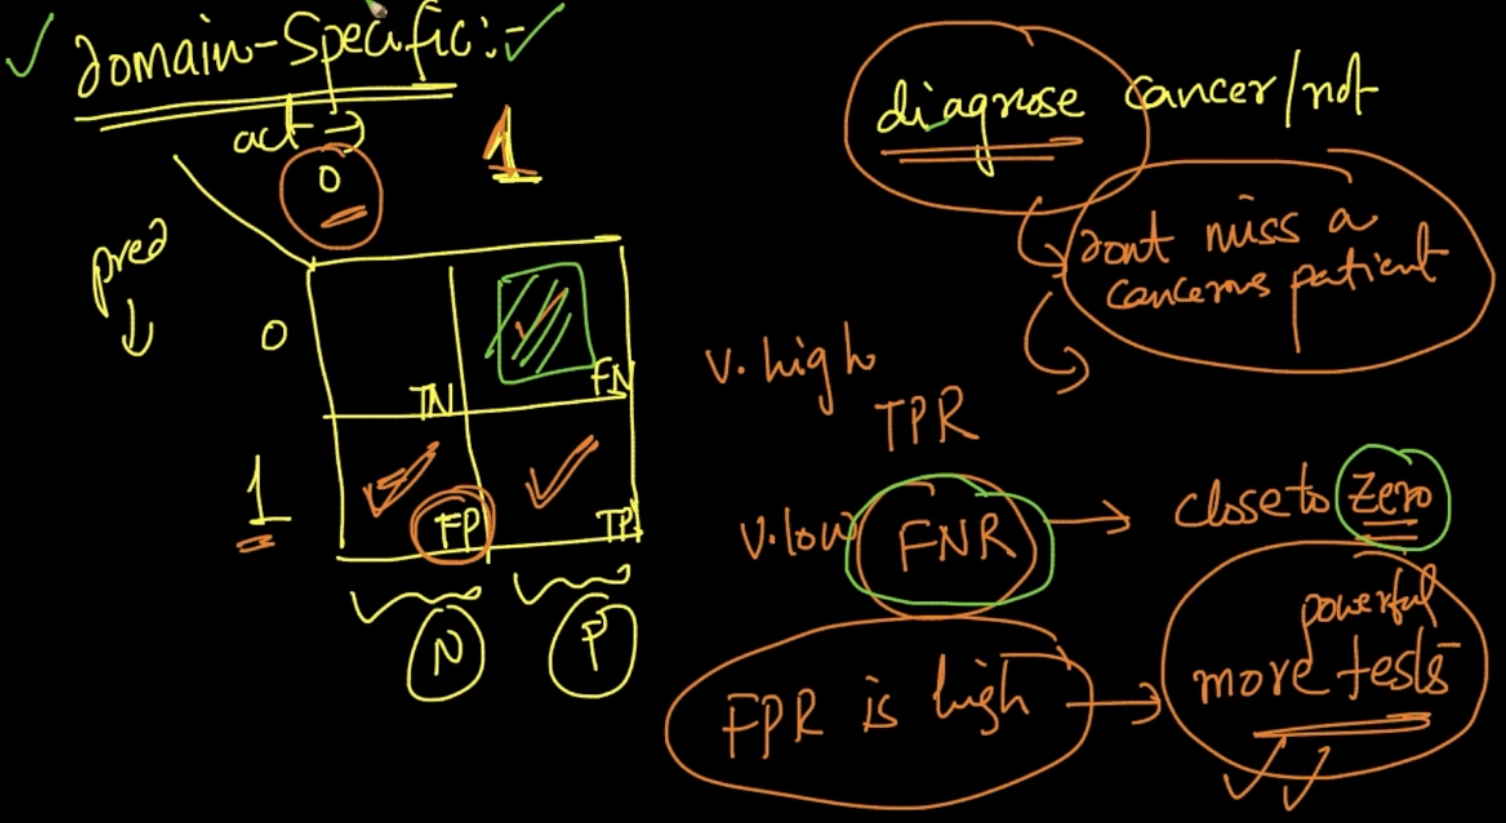 Domain-Specific:-
act →
0 1
pred
↓
0
TN FN
1
FP TP
N P
diagnose cancer/not
dont miss a
cancerous patient
v. high
TPR
v.low FNR → close to zero
FPR is high → powerful
more tests